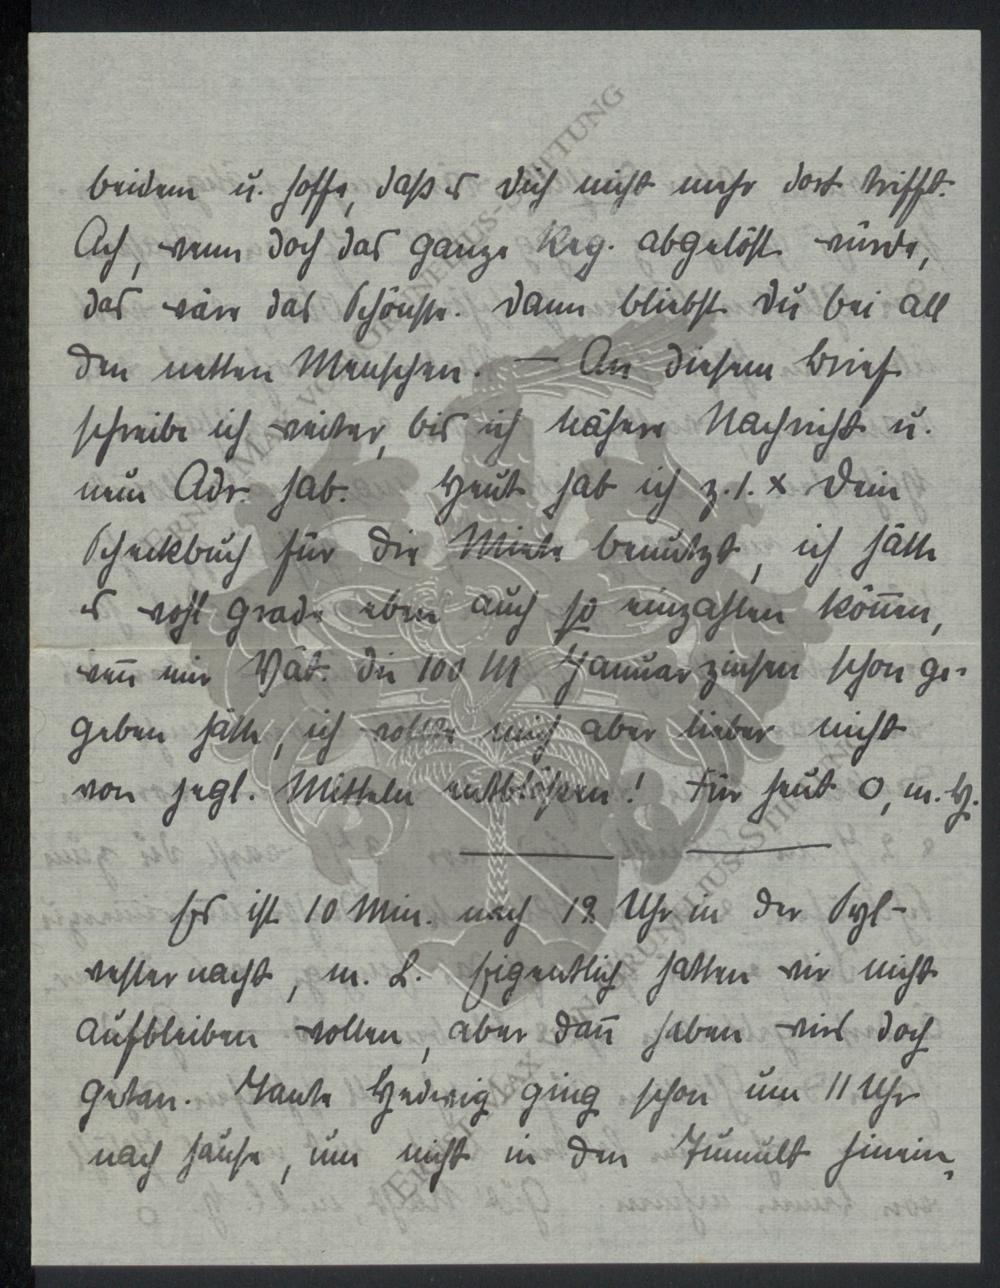 beidem u. hoffe, daß es dich nicht mehr dort trifft.
Ach, wenn doch das ganze Reg. abgelöst würde,
das wäre das Schönste. Dann bliebst Du bei all
den netten Menschen. — An diesem Brief
schreibe ich weiter, bis ich nähere Nachricht u.
neue Adr. hab. Heut hab ich z. 1. x Dein
Scheckbuch für die Miete benutzt, ich hätte
es wohl grade eben auch so einzahlen können,
wenn mir Vat. die 100 M Januarzinsen schon ge-
geben hätte, ich wollte mich aber lieber nicht
von jegl. Mitteln entblößen! Für heut O, m. H.
Es ist 10 Min. nach 12 Uhr in der Syl-
vesternacht, m. L. Eigentlich hatten wir nicht
aufbleiben wollen, aber dann haben wirs doch
getan. Tante Hedwig ging schon um 11 Uhr
nach Hause, um nicht in den Tumult hinein-
ERNST-MAX VON GRUNELIUS-STIFTUNG
ERNST-MAX VON GRUNELIUS-STIFTUNG